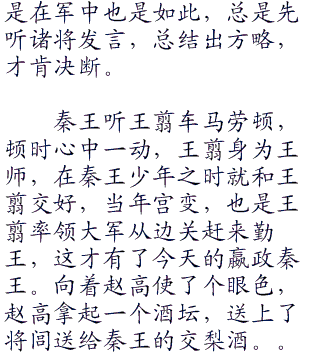 是在军中也是如此，总是先
听诸将发言，总结出方略，
才肯决断。
秦王听王翦车马劳顿，
顿时心中一动，王翦身为王
师，在秦王少年之时就和王
翦交好，当年宫变，也是王
翦率领大军从边关赶来勤
王，这才有了今天的嬴政秦
王。向着赵高使了个眼色，
赵高拿起一个酒坛，送上了
将闾送给秦王的交梨酒。。